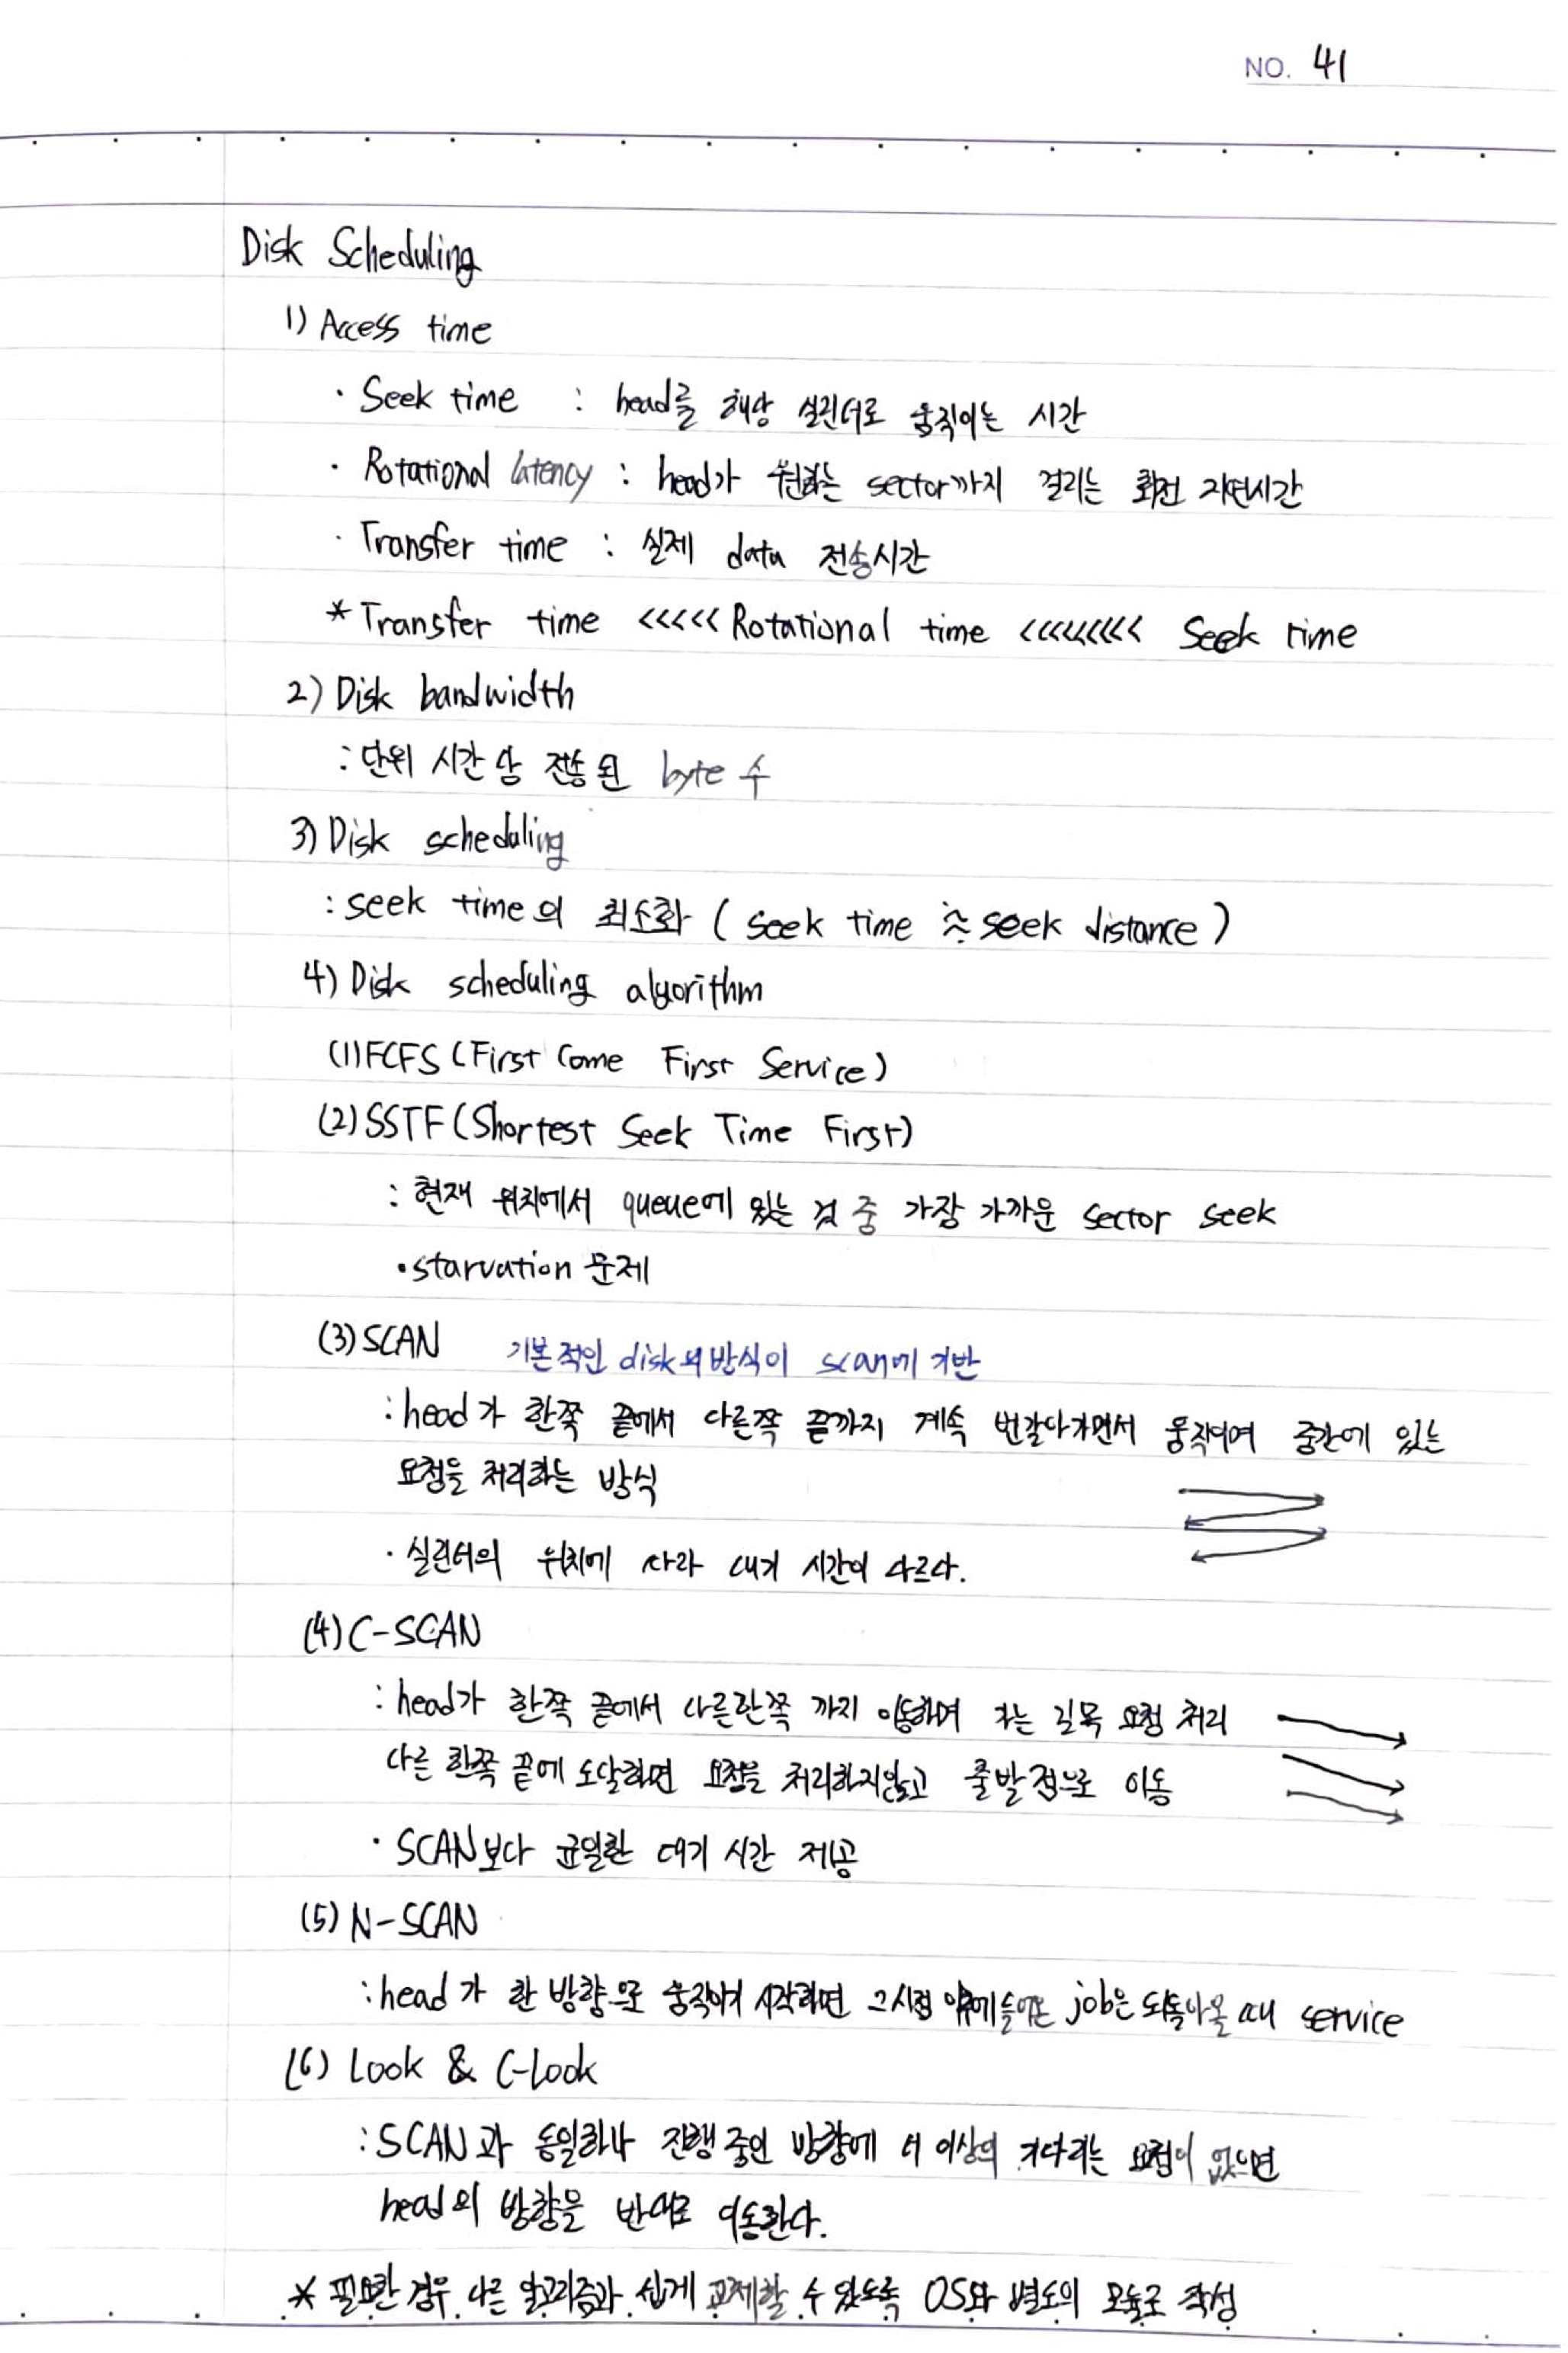 NO. 41
Disk Scheduling
1) Access time
· Seek time : head를 해당 실린더로 움직이는 시간
· Rotational latency : head가 원하는 sector까지 걸리는 회전 지연시간
· Transfer time : 실제 data 전송시간
* Transfer time <<<<< Rotational time <<<<<<<< Seek time
2) Disk bandwidth
: 단위 시간 당 전송 된 byte 수
3) Disk scheduling
: seek time의 최소화 ( seek time ≈ seek distance )
4) Disk scheduling algorithm
(1) FCFS (First Come First Service)
(2) SSTF (Shortest Seek Time First)
: 현재 위치에서 queue에 있는 것 중 가장 가까운 sector seek
• starvation 문제
(3) SCAN 기본적인 disk의 방식이 scan에 기반
: head가 한쪽 끝에서 다른쪽 끝까지 계속 번갈아가면서 움직이며 중간에 있는
요청을 처리하는 방식
· 실린더의 위치에 따라 대기 시간이 다르다.
(4) C-SCAN
: head가 한쪽 끝에서 다른한쪽 까지 이동하며 가는 길목 요청 처리
다른 한쪽 끝에 도달하면 요청을 처리하지않고 출발점으로 이동
· SCAN보다 균일한 대기 시간 제공
(5) N-SCAN
: head가 한 방향으로 움직이기 시작하면 그시점 이후에 들어온 job은 되돌아올 때 service
(6) Look & C-Look
: SCAN과 동일하나 진행 중인 방향에 더 이상의 기다리는 요청이 없으면
head의 방향을 반대로 이동한다.
* 필요한 경우 다른 알고리즘과 쉽게 교체할 수 있도록 OS와 별도의 모듈로 작성